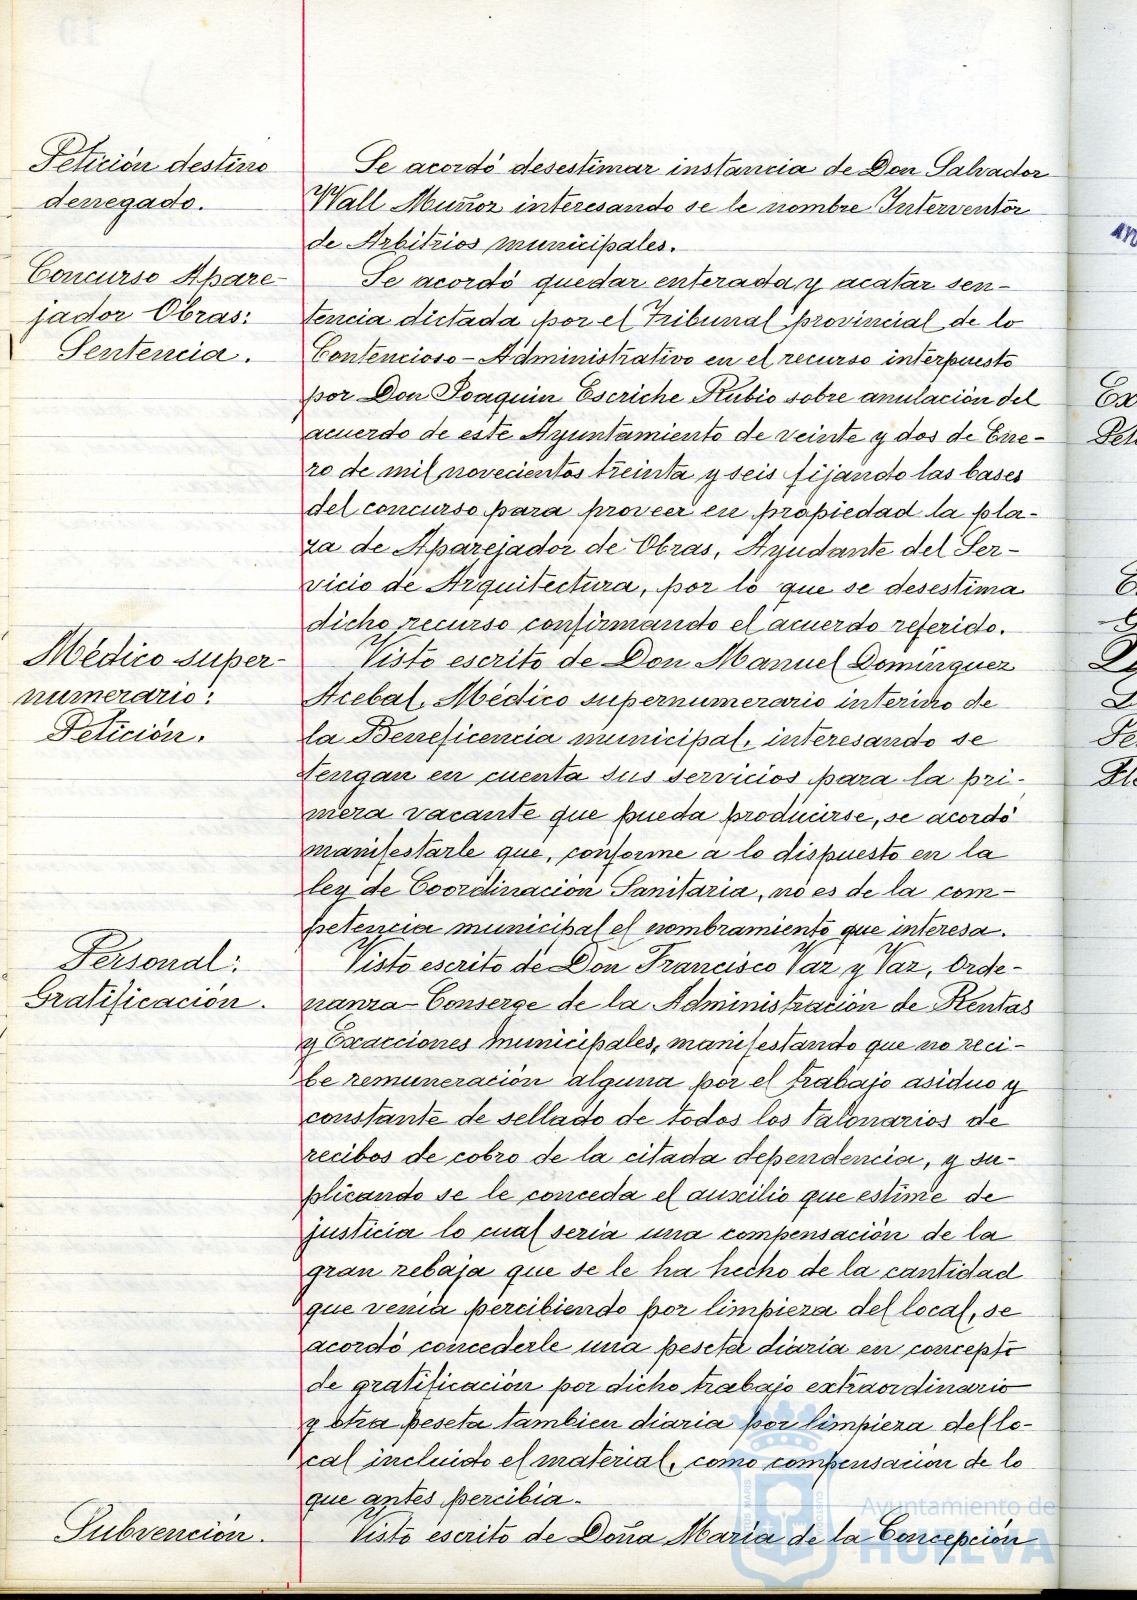 Petición destino
denegado.
Se acordó desestimar instancia de Don Salvador
Wall Muñoz interesando se le nombre Interventor
de Arbitrios municipales.
Concurso Apare-
jador Obras:
Sentencia.
Se acordó quedar enterada y acatar sen-
tencia dictada por el Tribunal provincial de lo
Contencioso-Administrativo en el recurso interpuesto
por Don Joaquin Escriche Rubio sobre anulación del
acuerdo de este Ayuntamiento de veinte y dos de Ene-
ro de mil novecientos treinta y seis fijando las bases
del concurso para proveer en propiedad la pla-
za de Aparejador de Obras, Ayudante del Ser-
vicio de Arquitectura, por lo que se desestima
dicho recurso confirmando el acuerdo referido.
Médico super-
numerario:
Petición.
Visto escrito de Don Manuel Domínguez
Acebal, Médico supernumerario interino de
la Beneficencia municipal, interesando se
tengan en cuenta sus servicios para la pri-
mera vacante que pueda producirse, se acordó
manifestarle que, conforme a lo dispuesto en la
ley de Coordinación Sanitaria, no es de la com-
petencia municipal el nombramiento que interesa.
Personal:
Gratificación.
Visto escrito de Don Francisco Vaz y Vaz, Orde-
nanza-Conserge de la Administración de Rentas
y Exacciones municipales, manifestando que no reci-
be remuneración alguna por el trabajo asiduo y
constante de sellado de todos los talonarios de
recibos de cobro de la citada dependencia, y su-
plicando se le conceda el auxilio que estime de
justicia lo cual seria una compensación de la
gran rebaja que se le ha hecho de la cantidad
que venia percibiendo por limpieza del local, se
acordó concederle una peseta diaria en concepto
de gratificación por dicho trabajo extraordinario
y otra peseta tambien diaria por limpieza del lo-
cal incluido el material, como compensación de lo
que antes percibia.
Subvención.
Visto escrito de Doña María de la Concepción
Ayuntamiento de
HUELVA